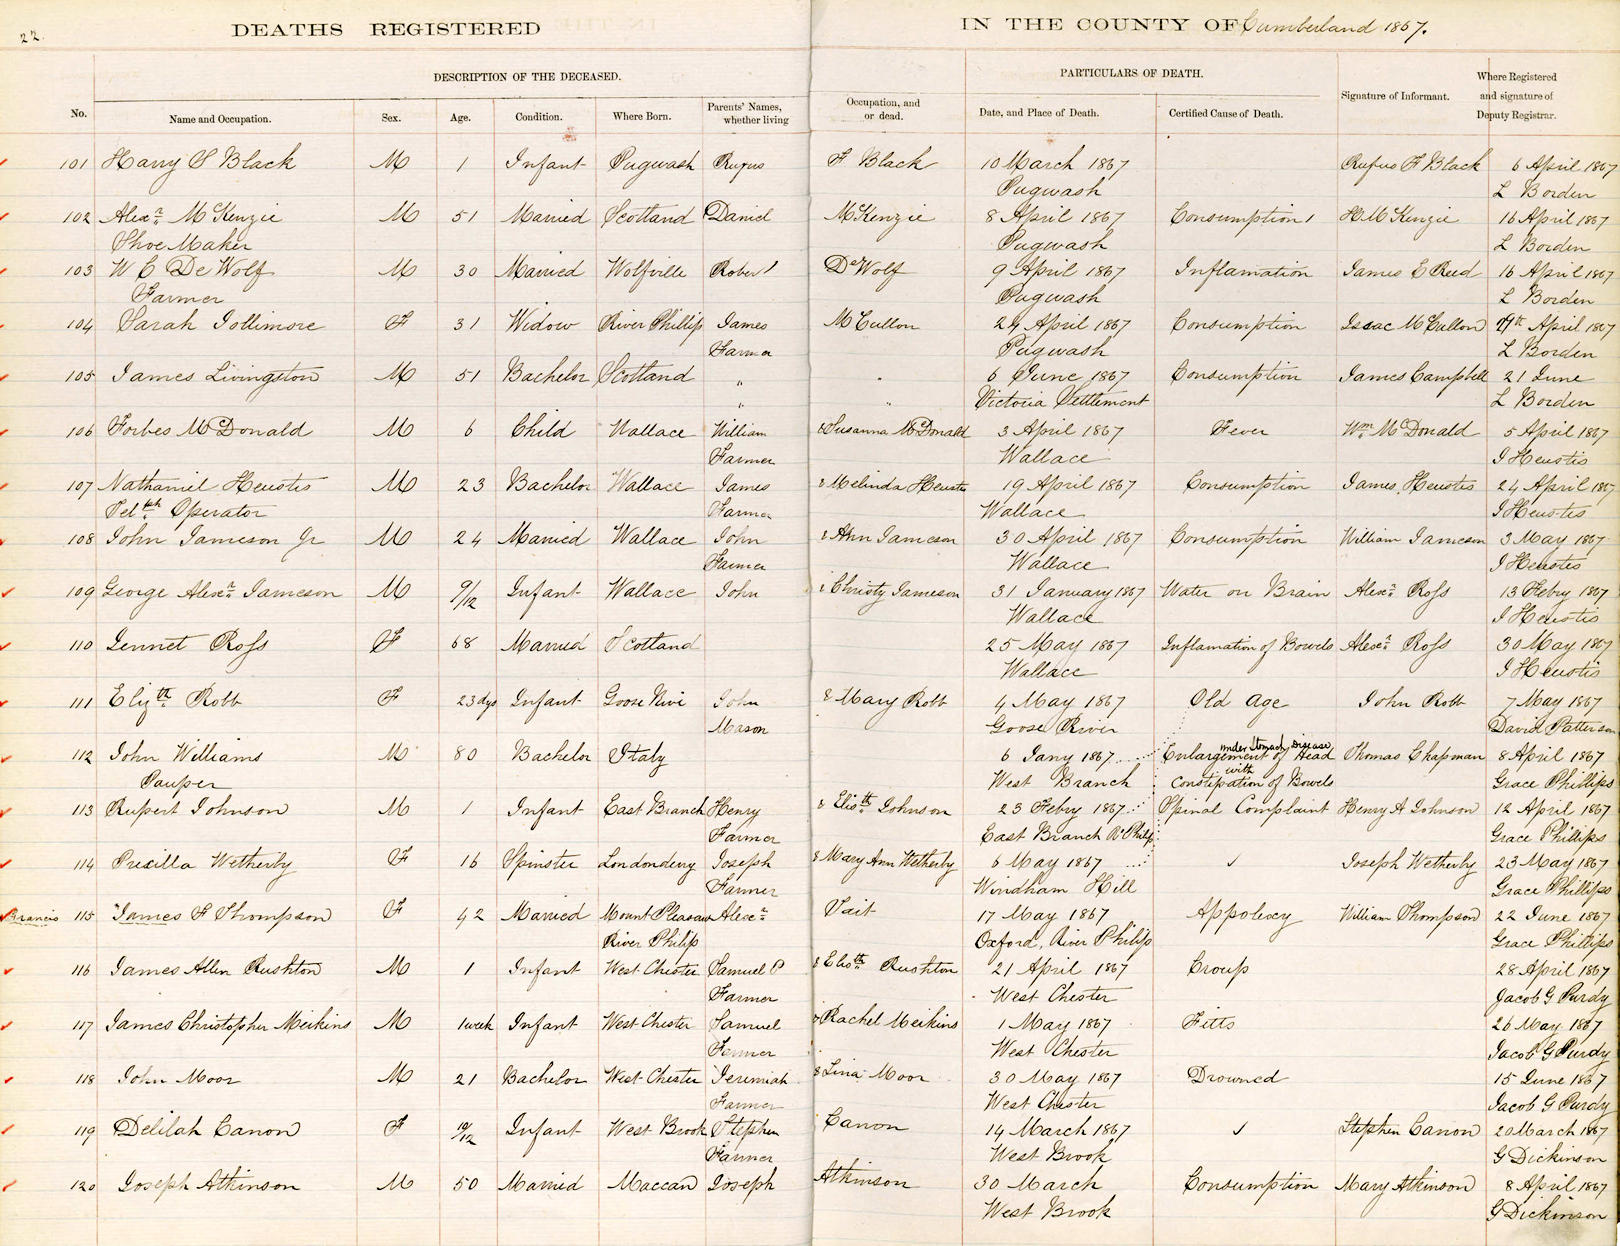 22.
DEATHS REGISTERED IN THE COUNTY OF Cumberland 1867.
DESCRIPTION OF THE DECEASED. PARTICULARS OF DEATH.
No. Name and Occupation. Sex. Age. Condition. Where Born. Parents' Names, whether living Occupation, and or dead. Date, and Place of Death. Certified Cause of Death. Signature of Informant. Where Registered and signature of Deputy Registrar.
101 Harry S Black M 1 Infant Pugwash Rufus F Black 10 March 1867 Rufus F Black 6 April 1867
Pugwash L Borden
102 Alexr McKenzie M 51 Married Scotland Daniel McKenzie 8 April 1867 Consumption H McKenzie 16 April 1867
Shoe Maker Pugwash L Borden
103 W C De Wolf M 30 Married Wolfville Robert DeWolf 9 April 1867 Inflamation James E Reed 16 April 1867
Farmer Pugwash L Borden
104 Sarah Jollimore F 31 Widow River Phillip James McCullon 24 April 1867 Consumption Isaac McCullon 29th April 1867
Farmer Pugwash L Borden
105 James Livingston M 51 Bachelor Scotland " " 6 June 1867 Consumption James Campbell 21 June
" " Victoria Settlement L Borden
106 Forbes McDonald M 6 Child Wallace William & Susanna McDonald 3 April 1867 Fever Wm McDonald 5 April 1867
Farmer Wallace J Heustis
107 Nathaniel Heustis M 23 Bachelor Wallace James & Melinda Heustis 19 April 1867 Consumption James Heustis 24 April 1867
Telgph Operator Farmer Wallace J Heustis
108 John Jameson Jr M 24 Married Wallace John & Ann Jameson 30 April 1867 Consumption William Jameson 3 May 1867
Farmer Wallace J Heustis
109 George Alexr Jameson M 9/12 Infant Wallace John & Christy Jameson 31 January 1867 Water on Brain Alexr Ross 13 Febry 1867
Wallace J Heustis
110 Jennet Ross F 68 Married Scotland 25 May 1867 Inflamation of Bowels Alexr Ross 30 May 1867
Wallace J Heustis
111 Elizth Robb F 23 dys Infant Goose River John & Mary Robb 4 May 1867 Old Age John Robb 7 May 1867
Mason Goose River David Patterson
112 John Williams M 80 Bachelor Italy 6 Jany 1867 Enlargement of Head under Stomach Disease Thomas Chapman 8 April 1867
Pauper West Branch with Constipation of Bowels Grace Phillips
113 Rupert Johnson M 1 Infant East Branch Henry & Elisth Johnson 23 Febry 1867 Spinal Complaint Henry A Johnson 12 April 1867
Farmer East Branch R Philip Grace Phillips
114 Precilla Wetherby F 16 Spinster Londonderry Joseph & Mary Ann Wetherby 6 May 1867 ✓ Joseph Wetherby 23 May 1867
Farmer Windham Hill Grace Phillips
Francis 115 James F Thompson F 42 Married Mount Pleasant Alexr Vait 17 May 1867 Appolexy William Thompson 22 June 1867
River Philip Oxford, River Philip Grace Phillips
116 James Allen Rushton M 1 Infant West Chester Samuel P & Elisth Rushton 21 April 1867 Croup 28 April 1867
Farmer West Chester Jacob G Purdy
117 James Christopher Meikins M 1 week Infant West Chester Samuel & Rachel Meikins 1 May 1867 Fitts 26 May 1867
Farmer West Chester Jacob G Purdy
118 John Moor M 21 Bachelor West Chester Jeremiah & Lina Moor 30 May 1867 Drowned 15 June 1867
Farmer West Chester Jacob G Purdy
119 Delilah Canon F 10/12 Infant West Brook Stephen Canon 14 March 1867 ✓ Stephen Canon 20 March 1867
Farmer West Brook G Dickinson
120 Joseph Atkinson M 50 Married Maccan Joseph Atkinson 30 March Consumption Mary Atkinson 8 April 1867
West Brook G Dickinson